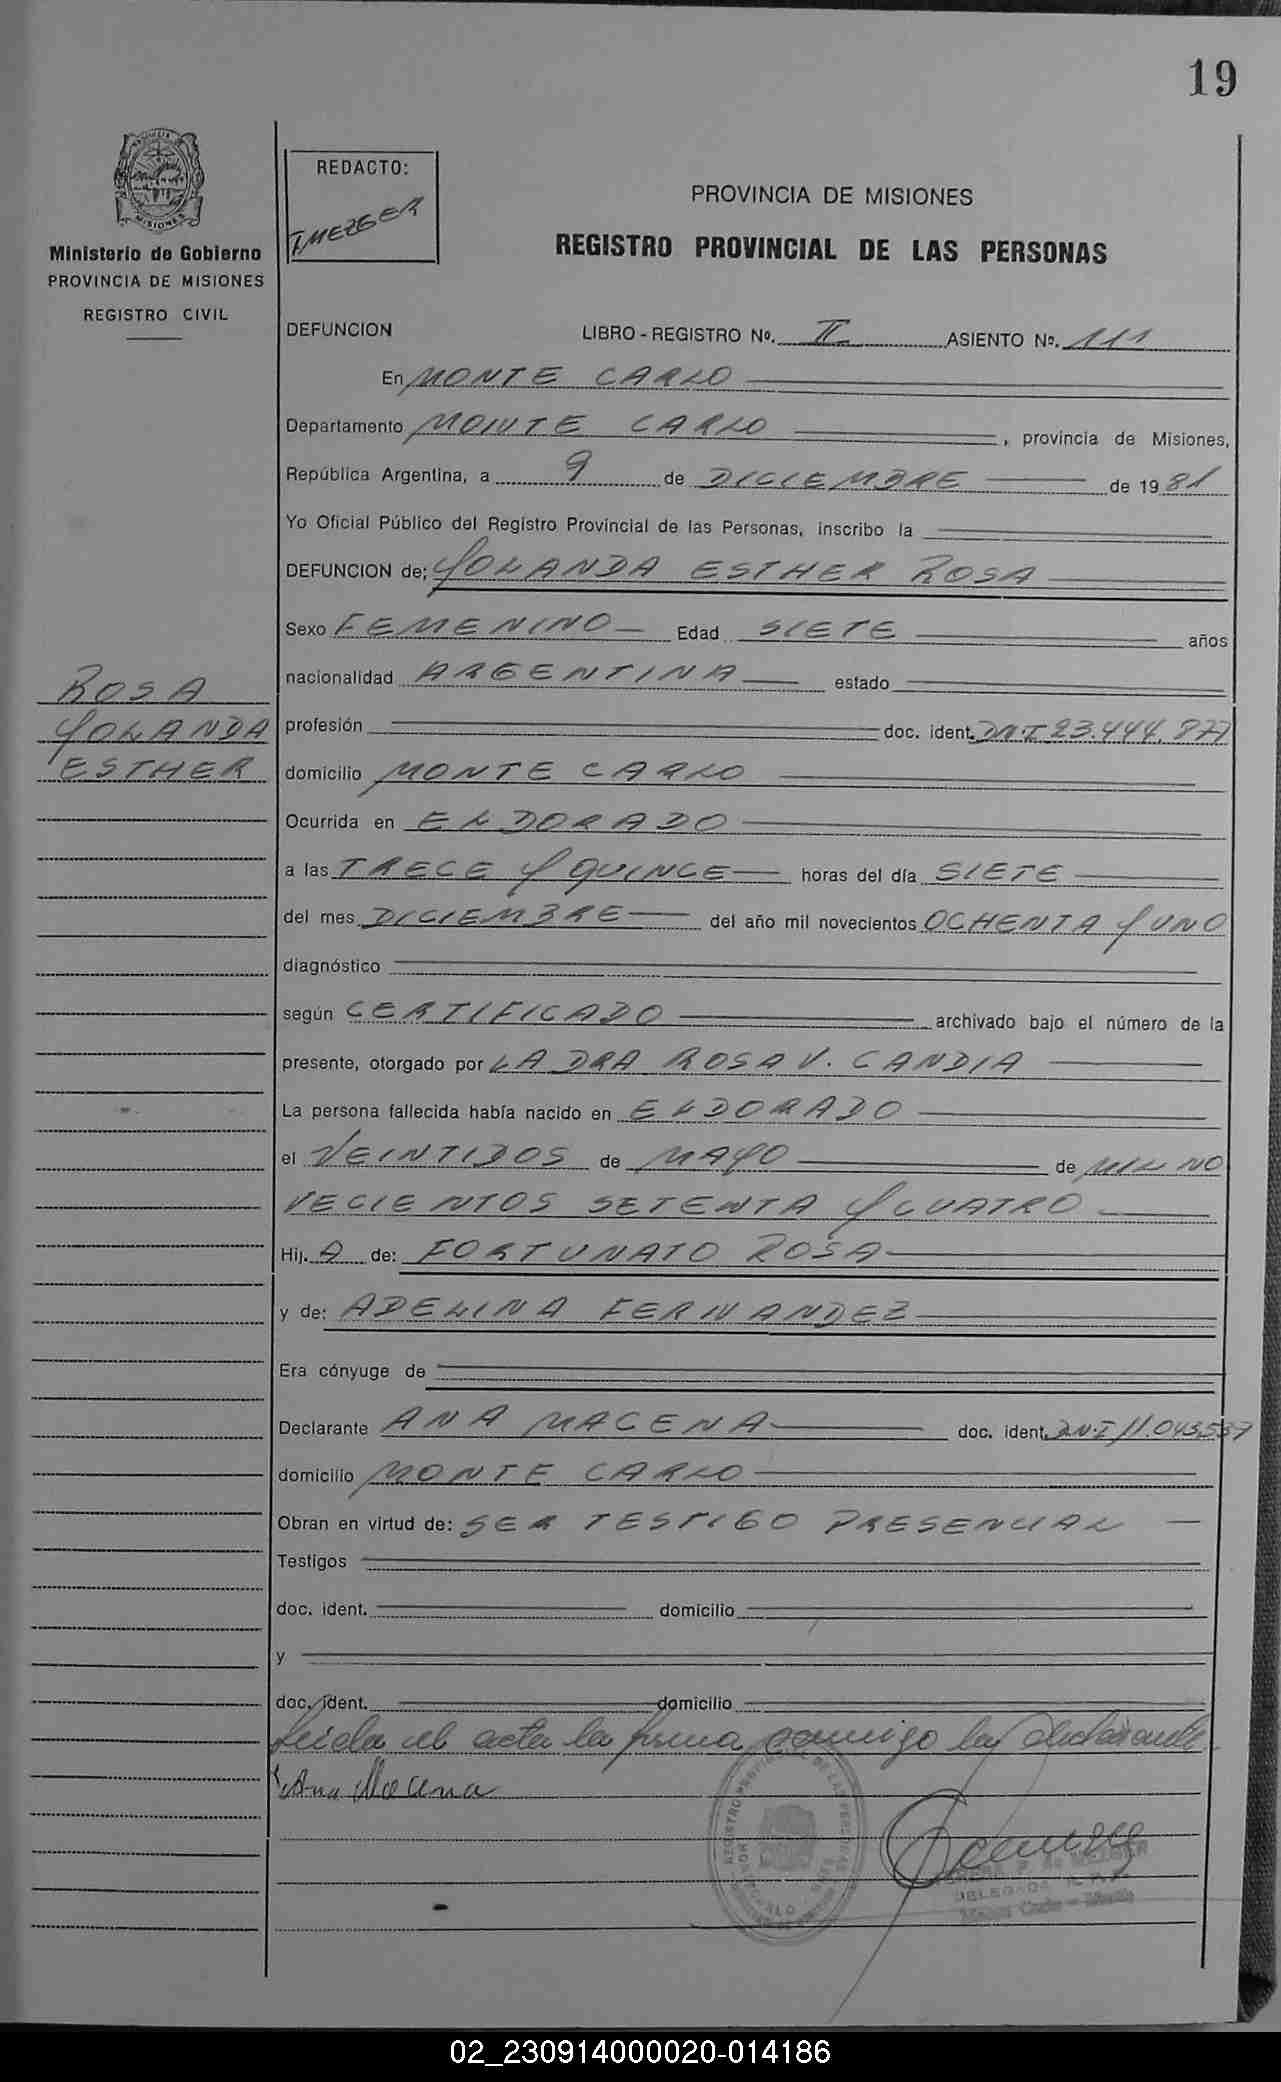 19
MISIONES
Ministerio de Gobierno
PROVINCIA DE MISIONES
REGISTRO CIVIL
REDACTO:
MEZGER
PROVINCIA DE MISIONES
REGISTRO PROVINCIAL DE LAS PERSONAS
DEFUNCION LIBRO - REGISTRO Nº. II ASIENTO Nº. 111
En MONTE CARLO
Departamento MONTE CARLO , provincia de Misiones,
República Argentina, a 9 de DICIEMBRE de 1981
Yo Oficial Público del Registro Provincial de las Personas, inscribo la
DEFUNCION de; YOLANDA ESTHER ROSA
Sexo FEMENINO Edad SIETE años
nacionalidad ARGENTINA estado
ROSA
YOLANDA
ESTHER
profesión doc. ident. DN.I 23.444.877
domicilio MONTE CARLO
Ocurrida en ELDORADO
a las TRECE Y QUINCE horas del día SIETE
del mes DICIEMBRE del año mil novecientos OCHENTA Y UNO
diagnóstico
según CERTIFICADO archivado bajo el número de la
presente, otorgado por LA DRA ROSA V. CANDIA
La persona fallecida había nacido en ELDORADO
el VEINTIDOS de MAYO de MIL NO
VECIENTOS SETENTA Y CUATRO
Hij. A de: FORTUNATO ROSA
y de: ADELINA FERNANDEZ
Era cónyuge de
Declarante ANA MACENA doc. ident. DN.I 11.043.537
domicilio MONTE CARLO
Obran en virtud de: SER TESTIGO PRESENCIAL
Testigos
doc. ident. domicilio
y
doc. ident. domicilio
Leida el acta la firma conmigo la declarante
Ana Macena
02_230914000020-014186